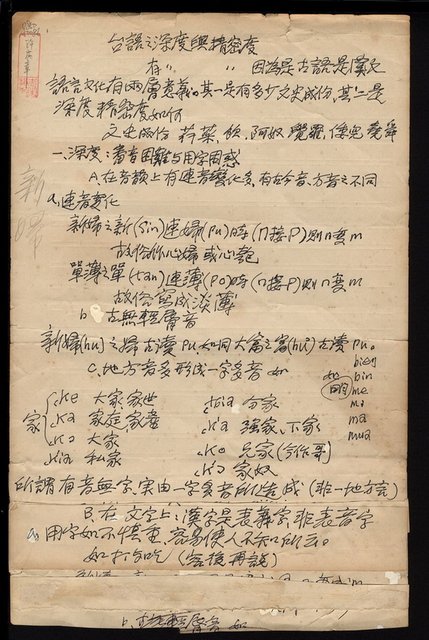 台語之深度與精密度
存〃 〃 因為是古語是漢足
語言文化有兩層意義。其一是有多少文史成份,其二是
深度精密度如何
文史成份
一、深度:音有困難與用字困惑
A、在音韻上有連音變化多,有古今音、方音之不同
a、連音變化
新婦之新(Sin)連婦(pu)時(n接P)則n变m
故俗作心婦或心匏
單薄之單(tan)連薄(Po)時(n接P)則n变m
故俗寫成淡薄
b 古無輕唇音
新婦(hu)之婦古讀pu,如同大富之富(hu)古讀pu。
C、地方音多形成一字多音 如
bien
bin
me
mi
ma
mua
家
ke 大家 家世
ka 家庭、家養
Ko 大家
kia 私家
分家
ka 強家、下家
Ko 兄家(今作哥)
家奴
所謂有音無字,实由一字多音所造成(非一地方言)
B、在文字上:漢字是表義字,非表音字
a、用字如不慎重,容易使人不知所云。
如打与吃(容後再談)
b、古無輕唇音 如
新婦